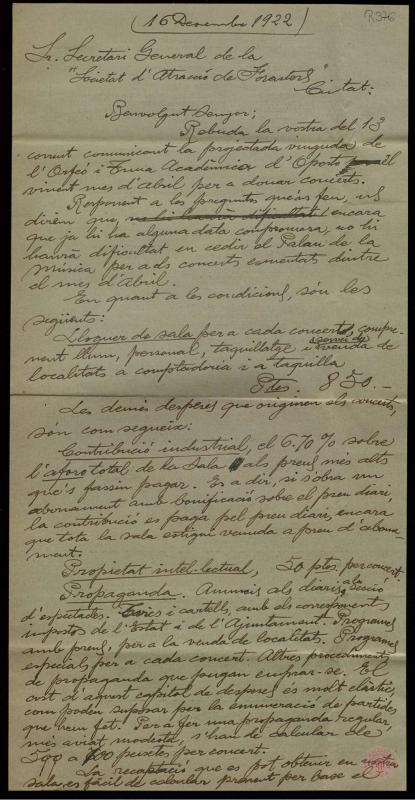 (16 Desembre 1922)
R376
Sr. Secretari General de la
"Societat d'Atracció de Forasters"
Ciutat:
Benvolgut Senyor;
Rebuda la vostra del 13
corrent comunicant la projectada vinguda de
l'Orfeó i Tuna Acadèmica d'Oporto el
vinent mes d'Abril per a donar concerts.
Responent a les preguntes que'ns feu, us
dirèm que, no hi hauria dificultat encara
que ja hi ha alguna data compromesa, no hi
hauria dificultat en cedir el Palau de la
Música per als concerts esmentats dintre
el mes d'Abril.
En quant a les condicions, són les
següents:
Lloguer de sala per a cada concert, compre-
nent llum, personal, taquillatge i servei de venda de
localitats a comptaduria i a taquilla
Ptes. 850.-
Les demés despeses que originen els concerts,
són com segueix:
Contribució industrial, el 6.70 % sobre
l'aforo total de la Sala als preus més alts
que's fassin pagar. Es a dir, si s'obra un
abonament amb bonificació sobre el preu diari,
la contribució es paga pel preu diari, encara
que tota la sala estigui venuda a preu d'abona-
ment.
Propietat intel-lectual, 50 ptes. per concert.
Propaganda. Anuncis als diaris a la Secció
d'espectacles. Tires i cartells, amb els corresponents
impostos de l'Estat i de l'Ajuntament. Programes
amb preus, per a la venda de localitats. Programes
especials per a cada concert. Altres procediments
de propaganda que pugan emprar-se. El
cost d'aquest capital de despeses es molt elàstic,
com podeu suposar per la enumeració de partides
que hem fet. Per a fer una propaganda regular
més aviat modesta, s'han de calcular de
500 a 600 pessetes per concert.
La recaptació que es pot obtenir en nostra
sala, es fàcil de calcular prenent per base el